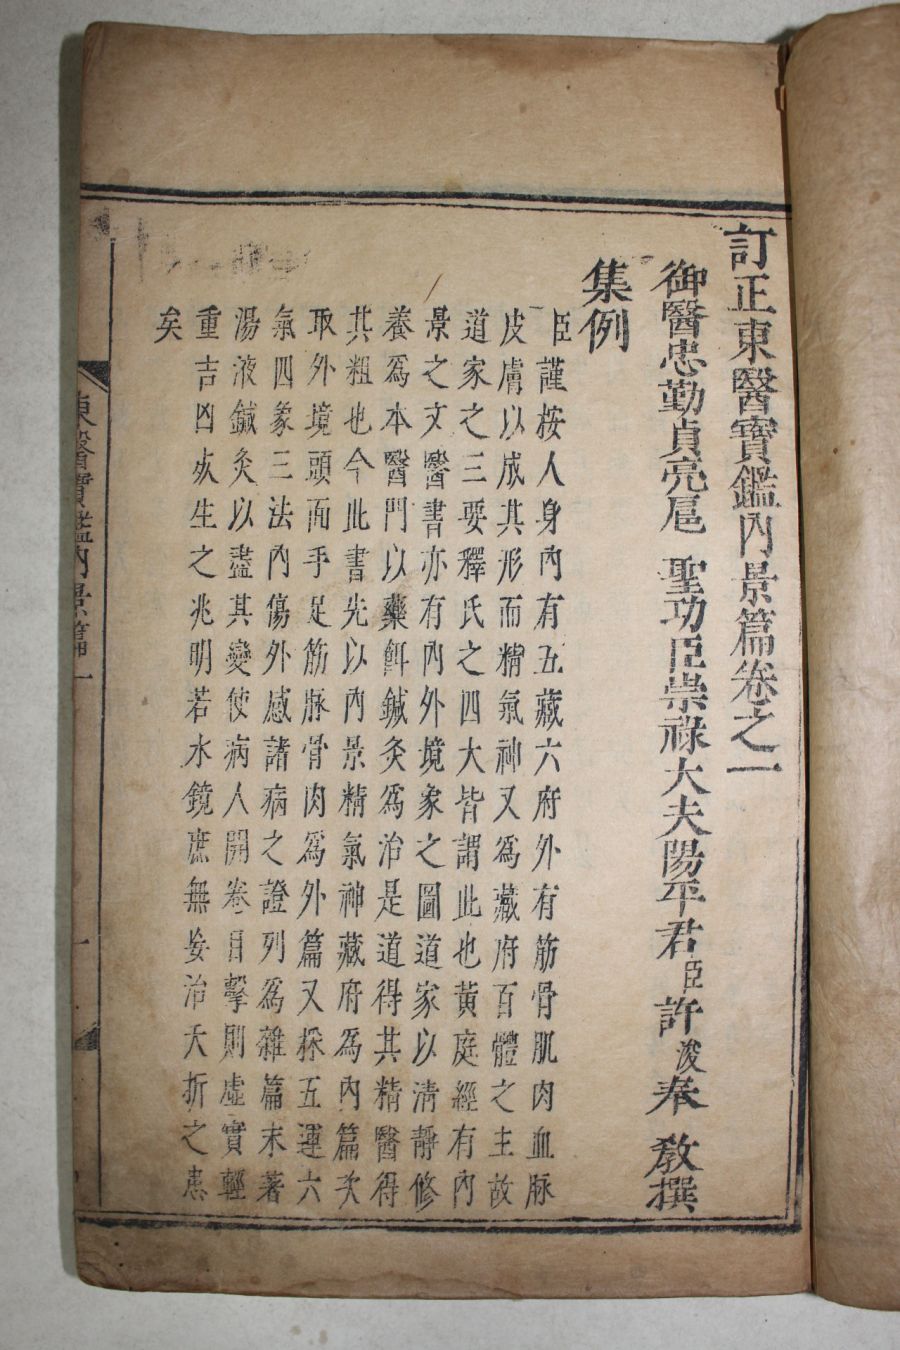 訂正東醫寶鑑內景篇卷之一
御醫忠勤貞亮扈 聖功臣崇祿大夫陽平君臣許浚奉 敎撰
集例
臣謹按人身內有五藏六府外有筋骨肌肉血脉
皮膚以成其形而精氣神又爲藏府百體之主故
道家之三要釋氏之四大皆謂此也黃庭經有內
景之文醫書亦有內外境象之圖道家以淸靜修
養爲本醫門以藥餌鍼灸爲治是道得其精醫得
其粗也今此書先以內景精氣神藏府爲內篇次
取外境頭面手足筋脉骨肉爲外篇又採五運六
氣四象三法內傷外感諸病之證列爲雜篇末著
湯液鍼灸以盡其變使病人開卷目擊則虛實輕
重吉凶死生之兆明若水鏡庶無妄治夭折之患
矣
東醫寶鑑內景篇一
一